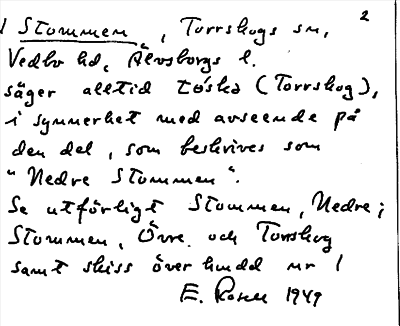 2
1 Stommen, Torrskogs sn,
Vedbo hd, Älvsborgs l.
säger alltid Töska (Torrskog),
i synnerhet med avseende på
den del, som beskrives som
"Nedre Stommen".
Se utförligt Stommen, Nedre;
Stommen, Övre och Torrskog
samt skiss över huvud nr 1
E. Rosell 1949